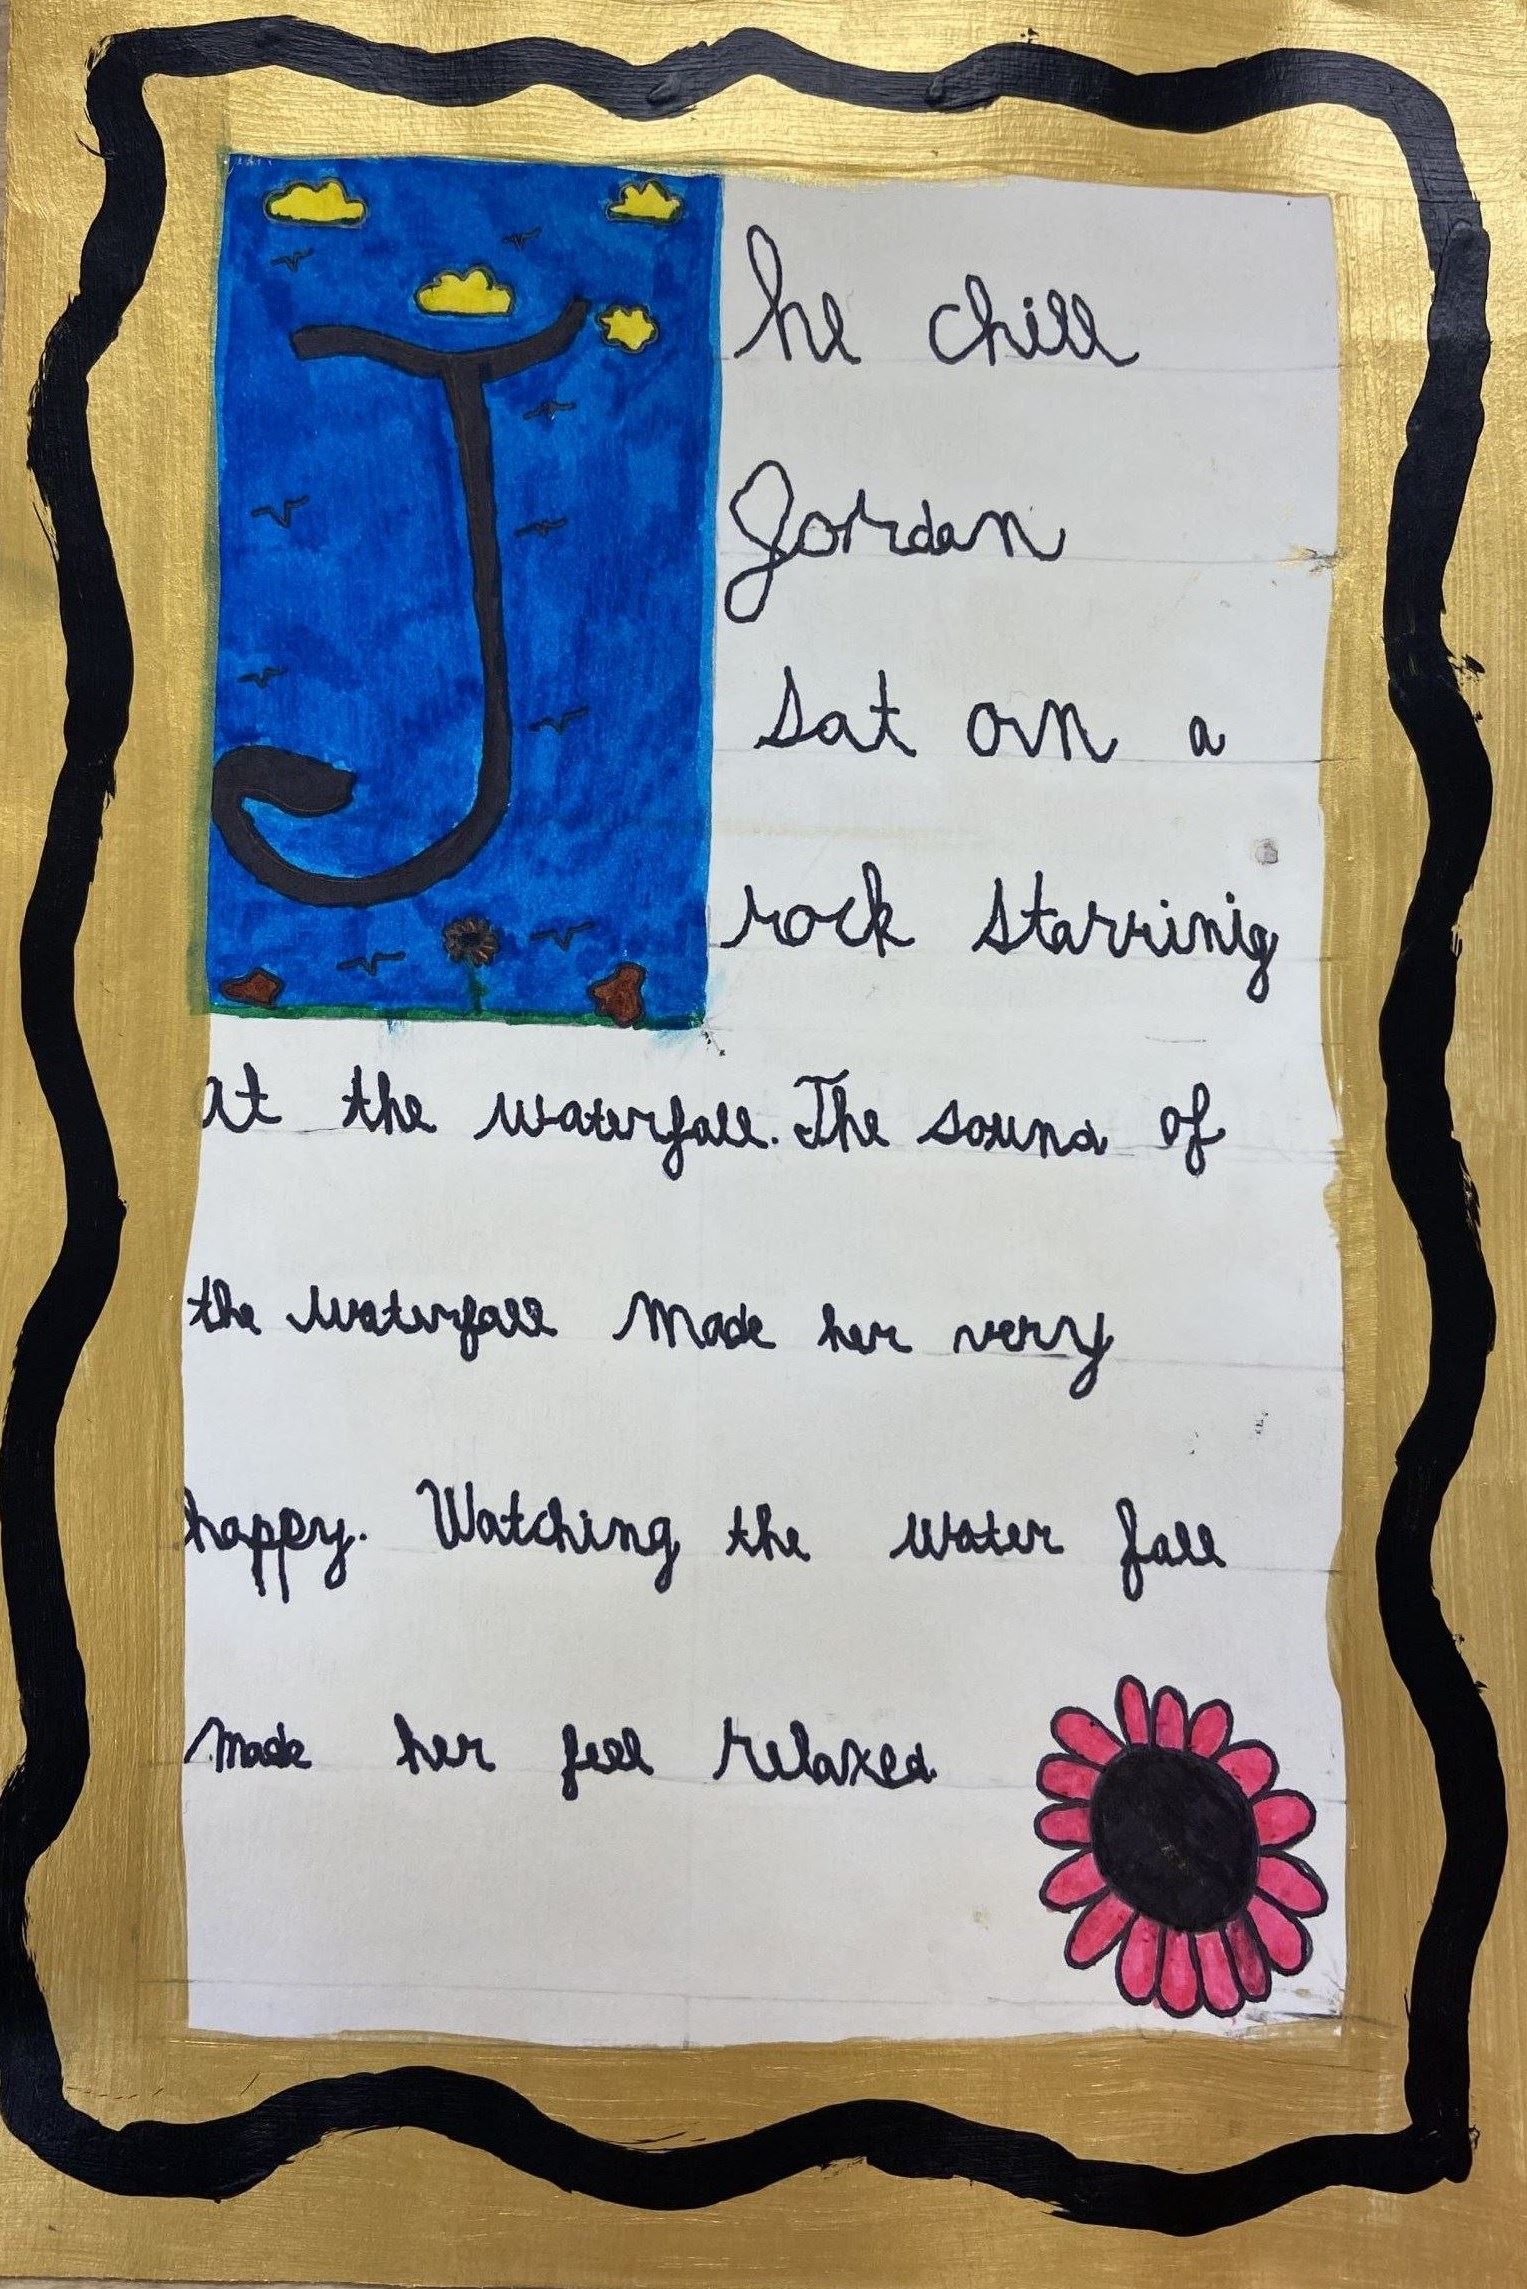 J he chill
Jordan
sat on a
rock starrinig
at the waterfall. The sound of
the waterfall made her very
happy. Watching the water fall
made her feel relaxed